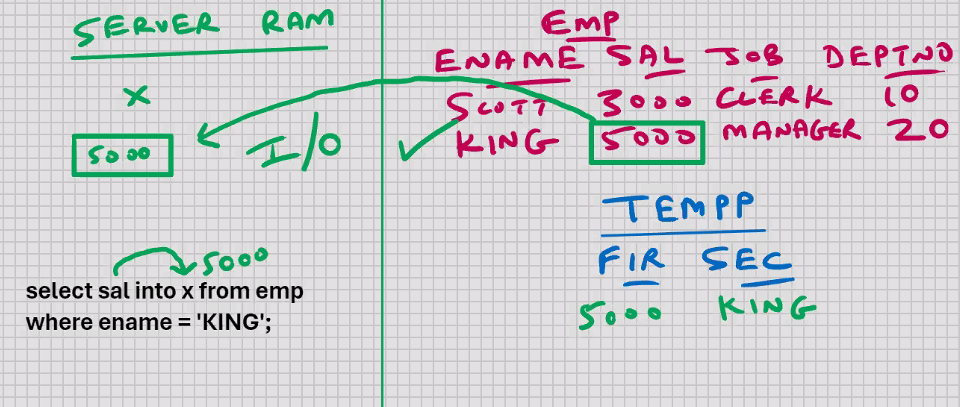 SERVER RAM
X
5000
I/O
5000
select sal into x from emp
where ename = 'KING';
EMP
ENAME SAL JOB DEPTNO
SCOTT 3000 CLERK 10
KING 5000 MANAGER 20
TEMPP
FIR SEC
5000 KING